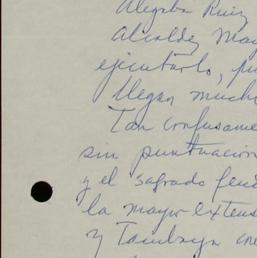 Alegría Ruiz
Alcaldes May
ejecutarlo, pu
llegan mucho
Tan confusame
sin puntuación
y el sagrado
la mayor extens
y